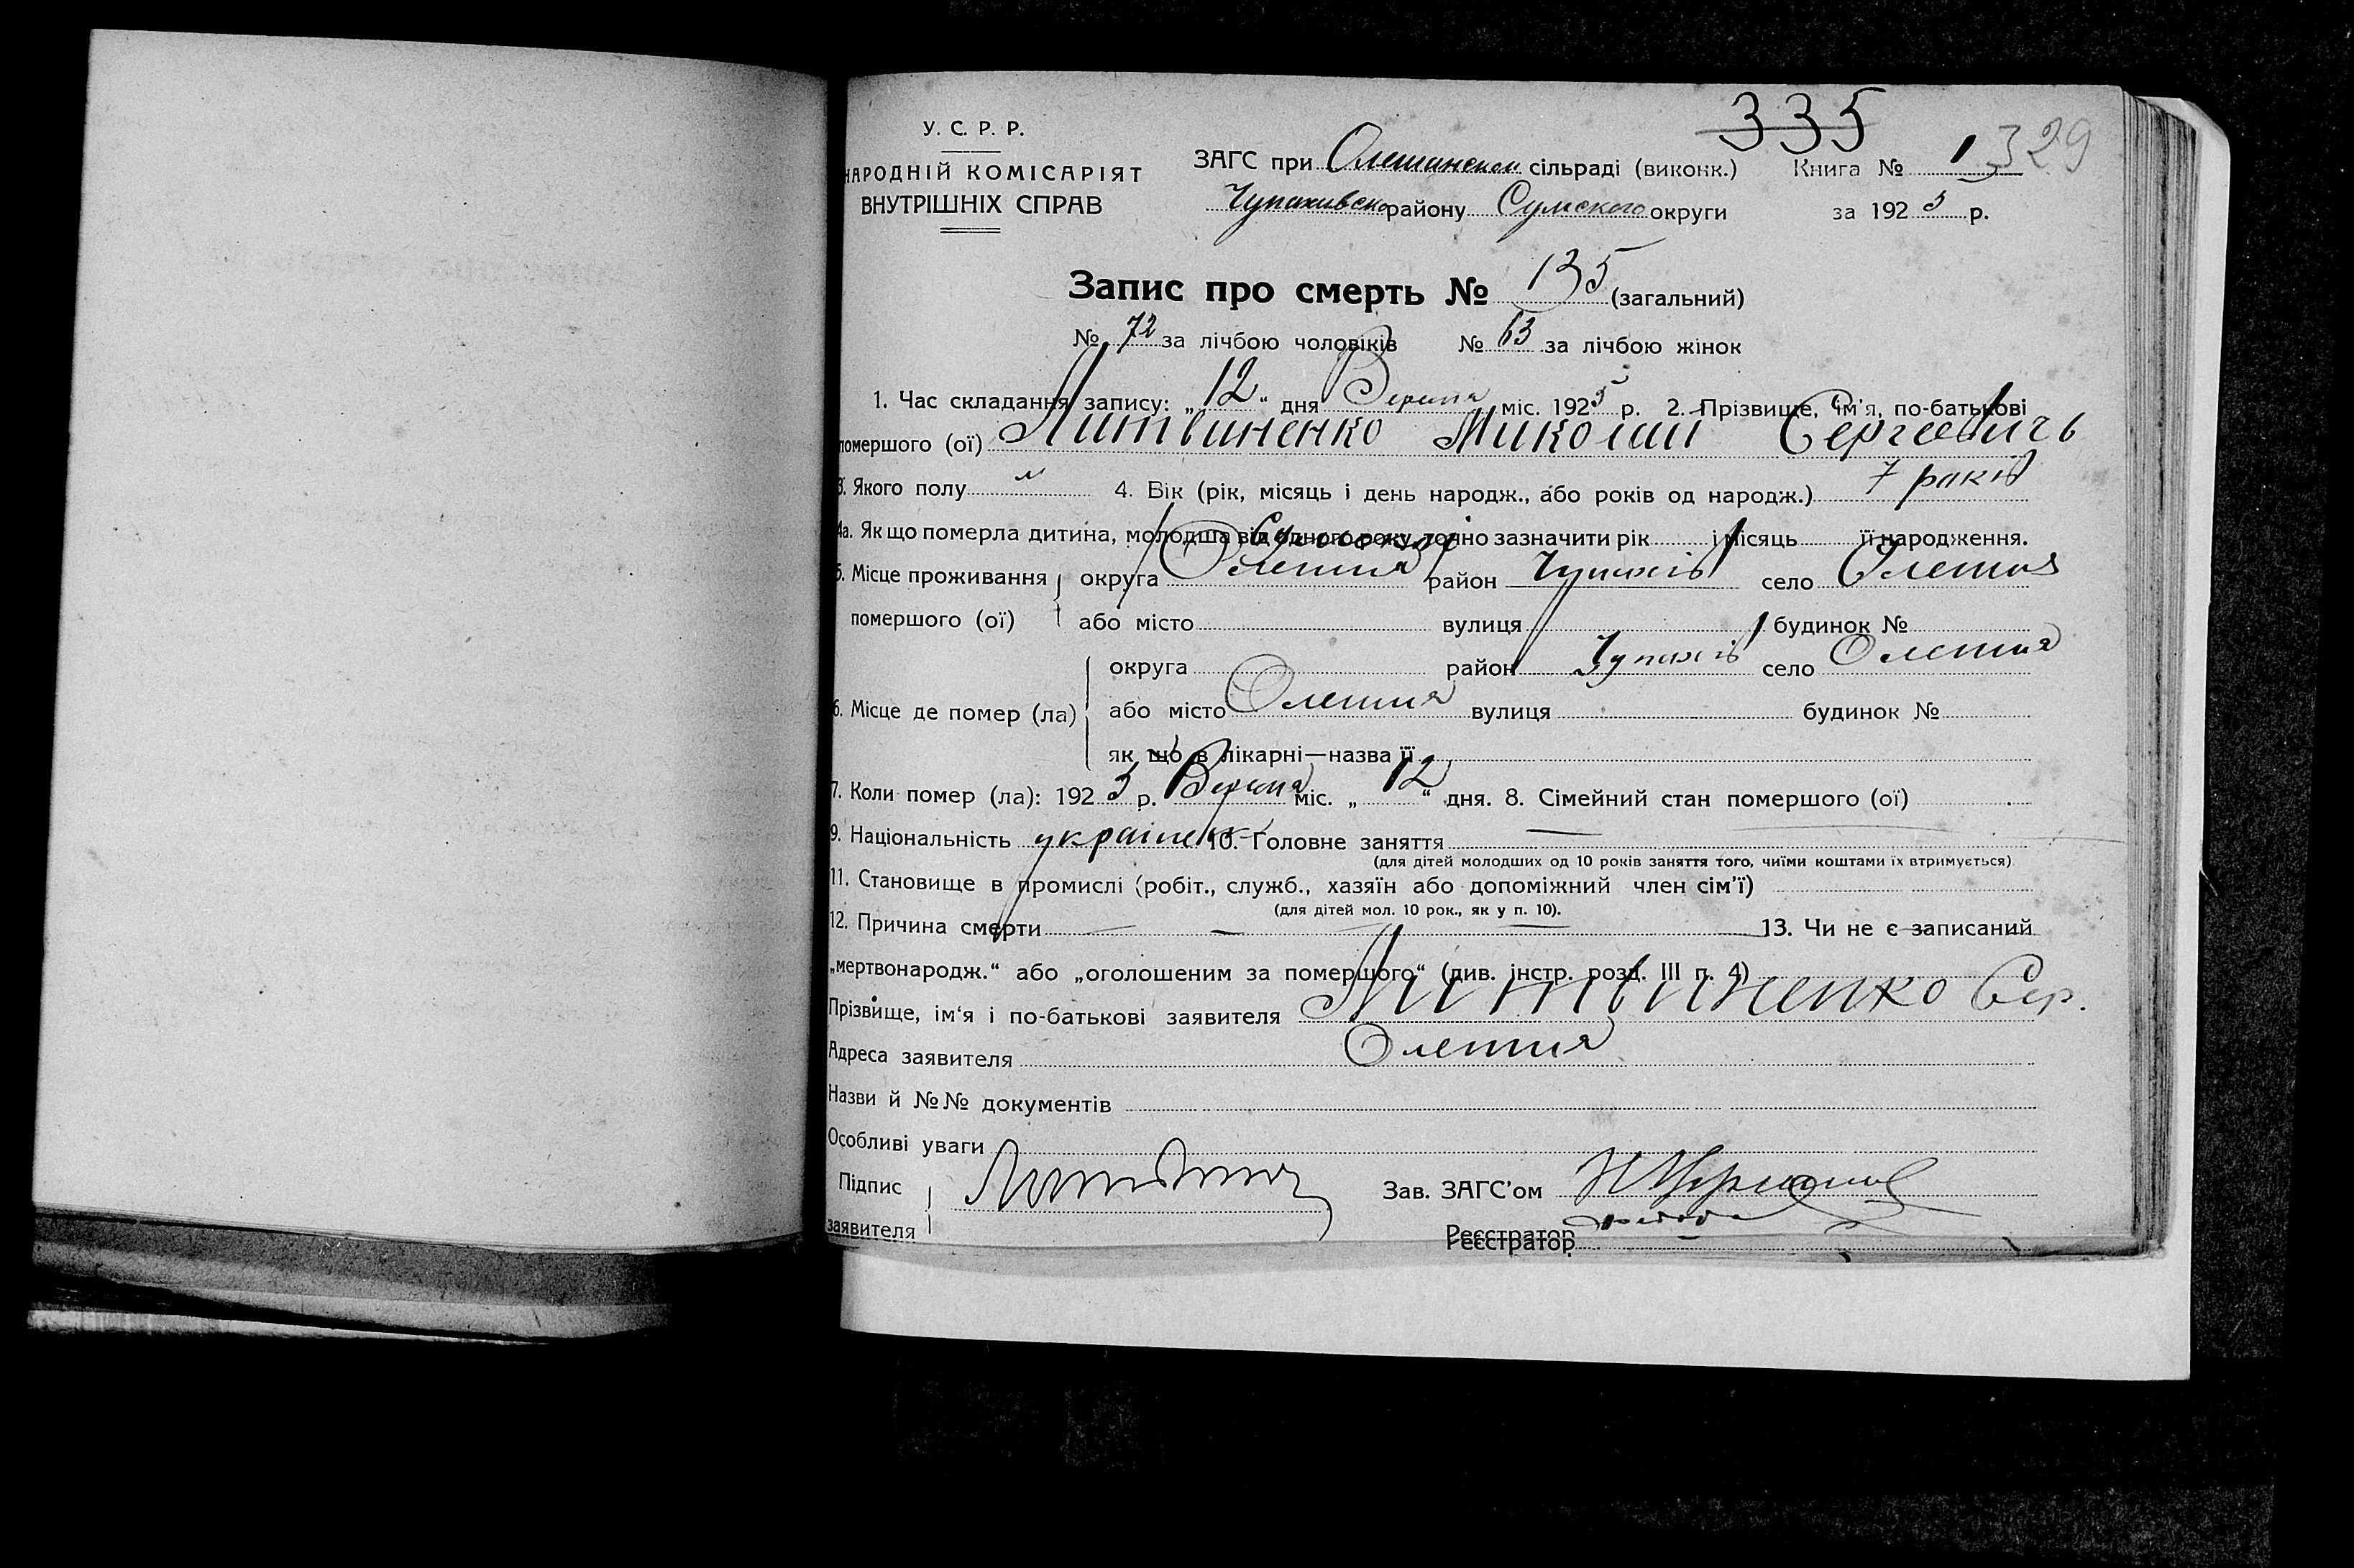 335
329
У. С. Р. Р.
НАРОДНІЙ КОМІСАРІЯТ
ВНУТРІШНІХ СПРАВ
ЗАГС при Олешинском сільраді (виконк.) Книга № 1
Чупахивско району Сумского округи за 1925 р.
Запис про смерть № 135 (загальний)
№ 72 за лічбою чоловіків № 63 за лічбою жінок
1. Час складання запису: „12“ дня міс. 1925 р. 2. Прізвище, ім'я, по-батькові
помершого (ої) Литвиненко Миколай Сергеевичь
3. Якого полу м 4. Вік (рік, місяць і день народж., або років од народж.) 7 років
4а. Як що померла дитина, молодша від одного року, точно зазначити рік і місяць її народження.
5. Місце проживання округа Олешня район Чупахів село Олешня
помершого (ої) або місто вулиця будинок №
округа район Чупахів село Олешня
6. Місце де помер (ла) або місто Олешня вулиця будинок №
як що в лікарні—назва її
7. Коли помер (ла): 1925 р. міс. „12“ дня. 8. Сімейний стан помершого (ої)
9. Національність україн 10. Головне заняття
(для дітей молодших од 10 років заняття того, чиїми коштами їх втримується)
11. Становище в промислі (робіт., служб., хазяїн або допоміжний член сім'ї)
(для дітей мол. 10 рок., як у п. 10).
12. Причина смерти — 13. Чи не є записаний
„мертвонародж.“ або „оголошеним за помершого“ (див. інстр. розд. III п. 4)
Прізвище, ім'я і по-батькові заявителя Литвиненко Сер.
Адреса заявителя Олешня
Назви й №№ документів
Особливі уваги
Підпис Зав. ЗАГС'ом
заявителя
Реєстратор